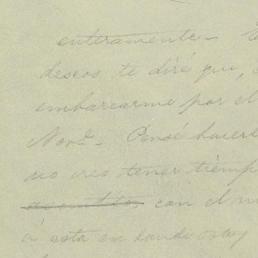 enteramente.
deseos, te dire que,
embarcarme por el
Novᵉ. Pensé hacerl
no creo tener tiemp
con el m
á esta en donde estoy